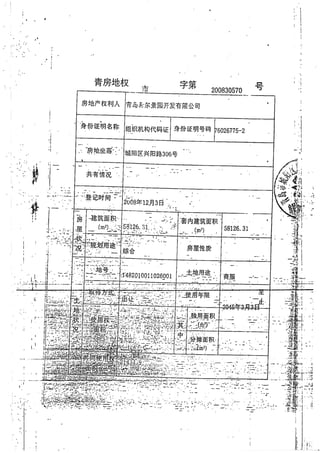 青房地权 市 字第 200830570 号
房地产权利人 青岛 尔景园开发有限公司
身份证明名称 组织机构代码证 身份证明号码 76026775-2
房地坐落 城阳区兴阳路306号
共有情况
登记时间 2008年12月3日
房屋状况
建筑面积 (m²) 58126.31 套内建筑面积 (m²) 58126.31
规划用途 综合 房屋性质
地号 土地用途 商服
土地状况
取得方式 出让 使用年限 至 2046年3月3日 止
使用权面积 其中 独用面积 (m²)
分摊面积 (m²)